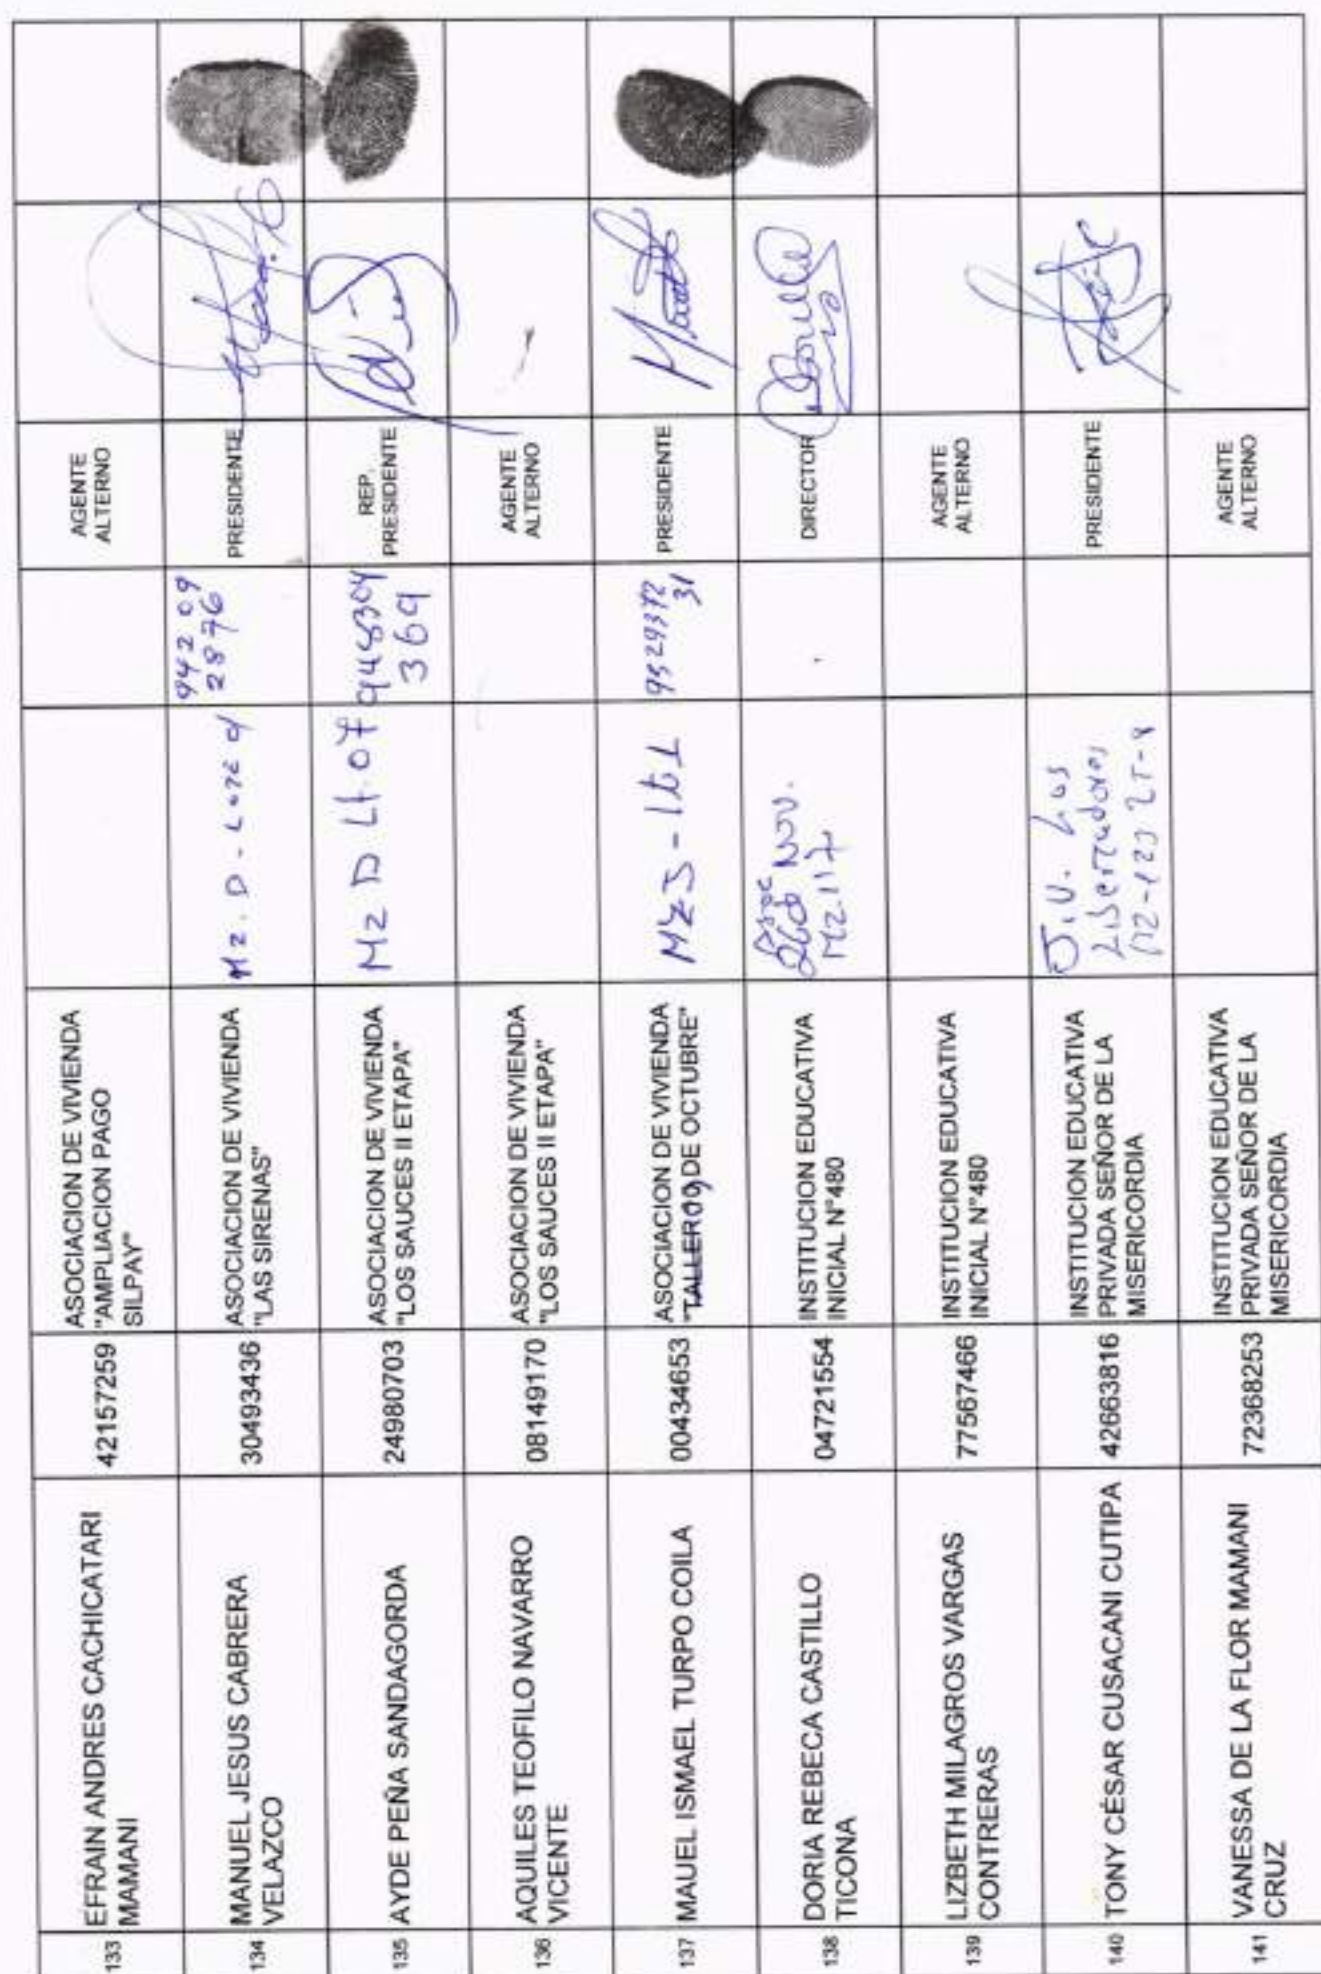 133
EFRAIN ANDRES CACHICATARI
MAMANI
42157259
ASOCIACION DE VIVIENDA
"AMPLIACION PAGO
SILPAY"
AGENTE
ALTERNO
134
MANUEL JESUS CABRERA
VELAZCO
30493436
ASOCIACION DE VIVIENDA
"LAS SIRENAS"
Mz. D - Lote 9
94209
2876
PRESIDENTE
135
AYDE PEÑA SANDAGORDA
24980703
ASOCIACION DE VIVIENDA
"LOS SAUCES II ETAPA"
Mz D Lt. 07
948304
369
REP.
PRESIDENTE
136
AQUILES TEOFILO NAVARRO
VICENTE
08149170
ASOCIACION DE VIVIENDA
"LOS SAUCES II ETAPA"
AGENTE
ALTERNO
137
MAUEL ISMAEL TURPO COILA
00434653
ASOCIACION DE VIVIENDA
"TALLER 09 DE OCTUBRE"
MzJ - Lt 1
9529372
31
PRESIDENTE
138
DORIA REBECA CASTILLO
TICONA
04721554
INSTITUCION EDUCATIVA
INICIAL N°480
Asoc
Nov.
Mz. 117
DIRECTOR
139
LIZBETH MILAGROS VARGAS
CONTRERAS
77567466
INSTITUCION EDUCATIVA
INICIAL N°480
AGENTE
ALTERNO
140
TONY CÉSAR CUSACANI CUTIPA
42663816
INSTITUCION EDUCATIVA
PRIVADA SEÑOR DE LA
MISERICORDIA
J.V. Los
Libertadores
PRESIDENTE
141
VANESSA DE LA FLOR MAMANI
CRUZ
72368253
INSTITUCION EDUCATIVA
PRIVADA SEÑOR DE LA
MISERICORDIA
AGENTE
ALTERNO